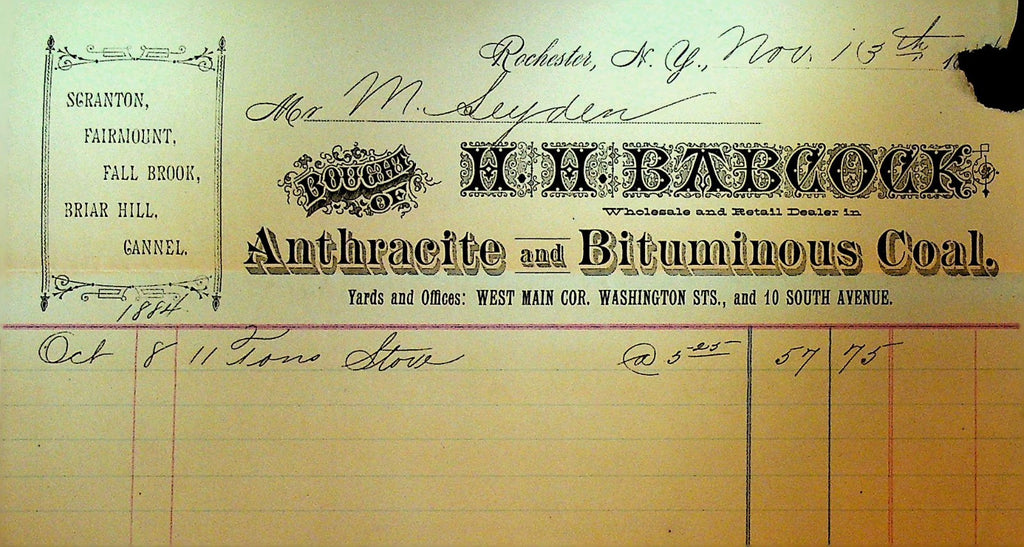 Rochester, N. Y., Nov. 13th 18
Mr M. Seyden
SCRANTON,
FAIRMOUNT,
FALL BROOK,
BRIAR HILL,
CANNEL.
BOUGHT OF
H. H. BABCOCK
Wholesale and Retail Dealer in
Anthracite and Bituminous Coal.
Yards and Offices: WEST MAIN COR. WASHINGTON STS., and 10 SOUTH AVENUE.
1884
Oct 8 11 Tons Stove @ 5 25 57 75